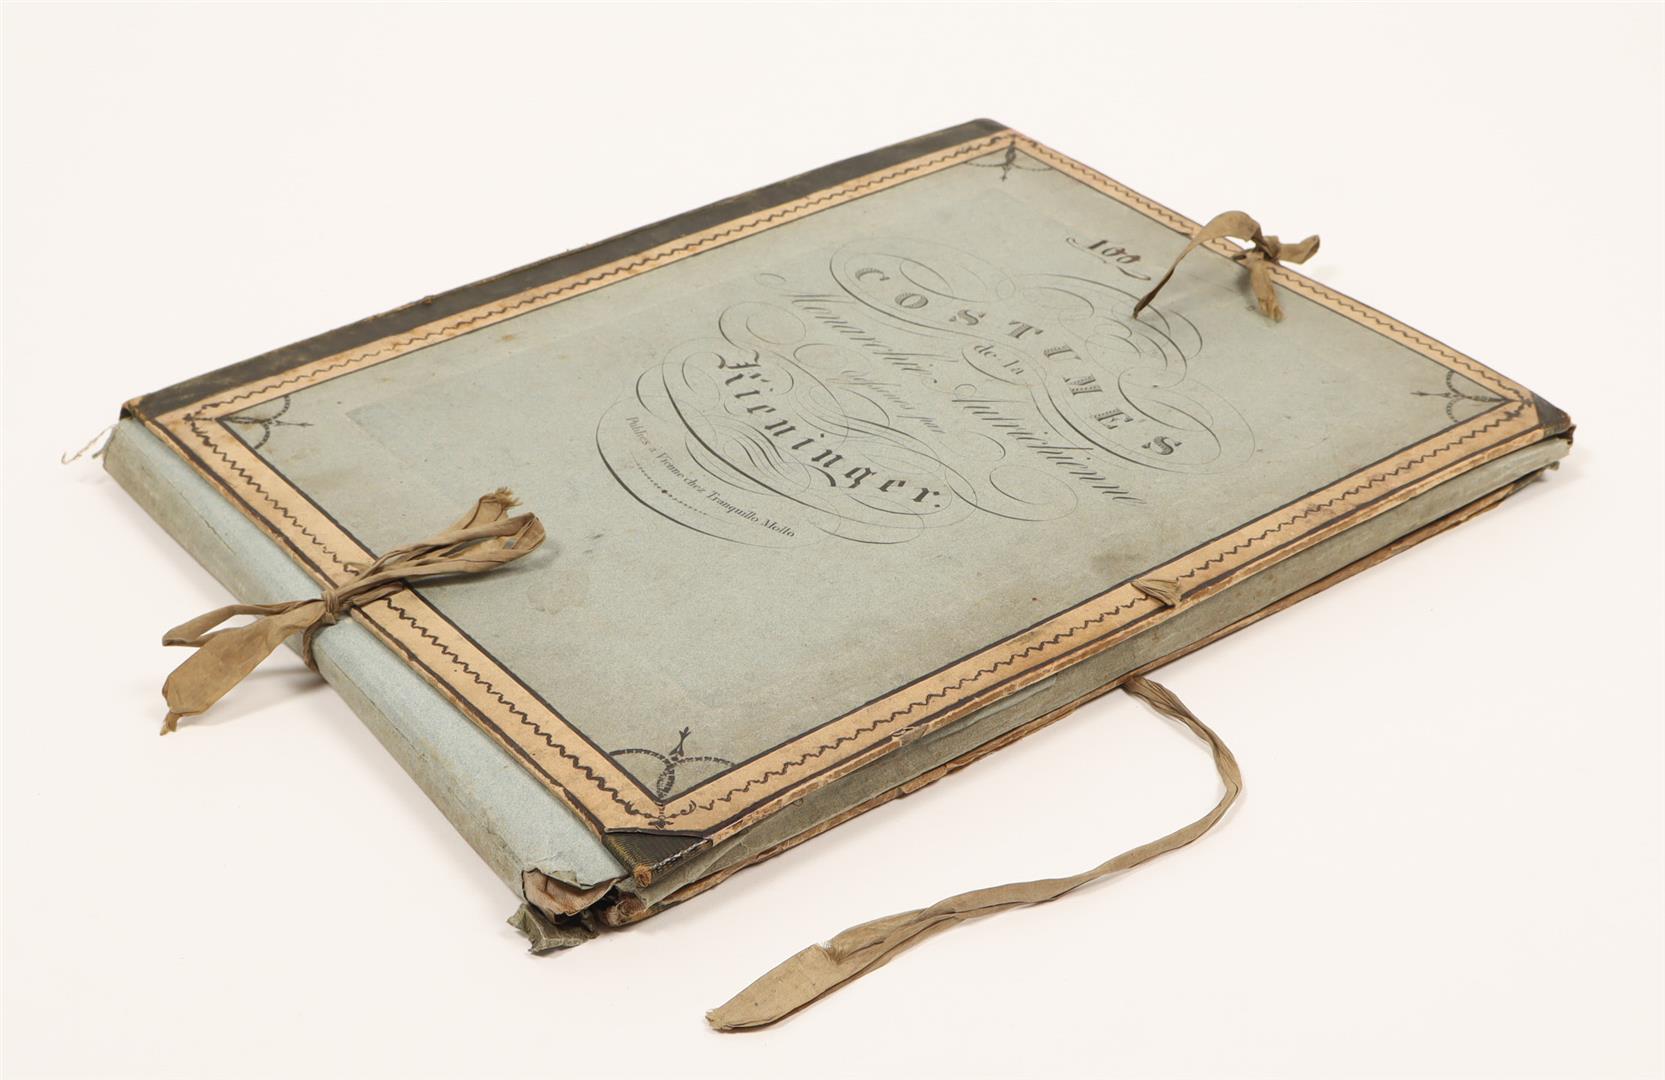 100
COSTUMES
de la
Monarchie Autrichienne
Dessinés par
Kieninger.
Publiés à Vienne chez Tranquillo Mollo